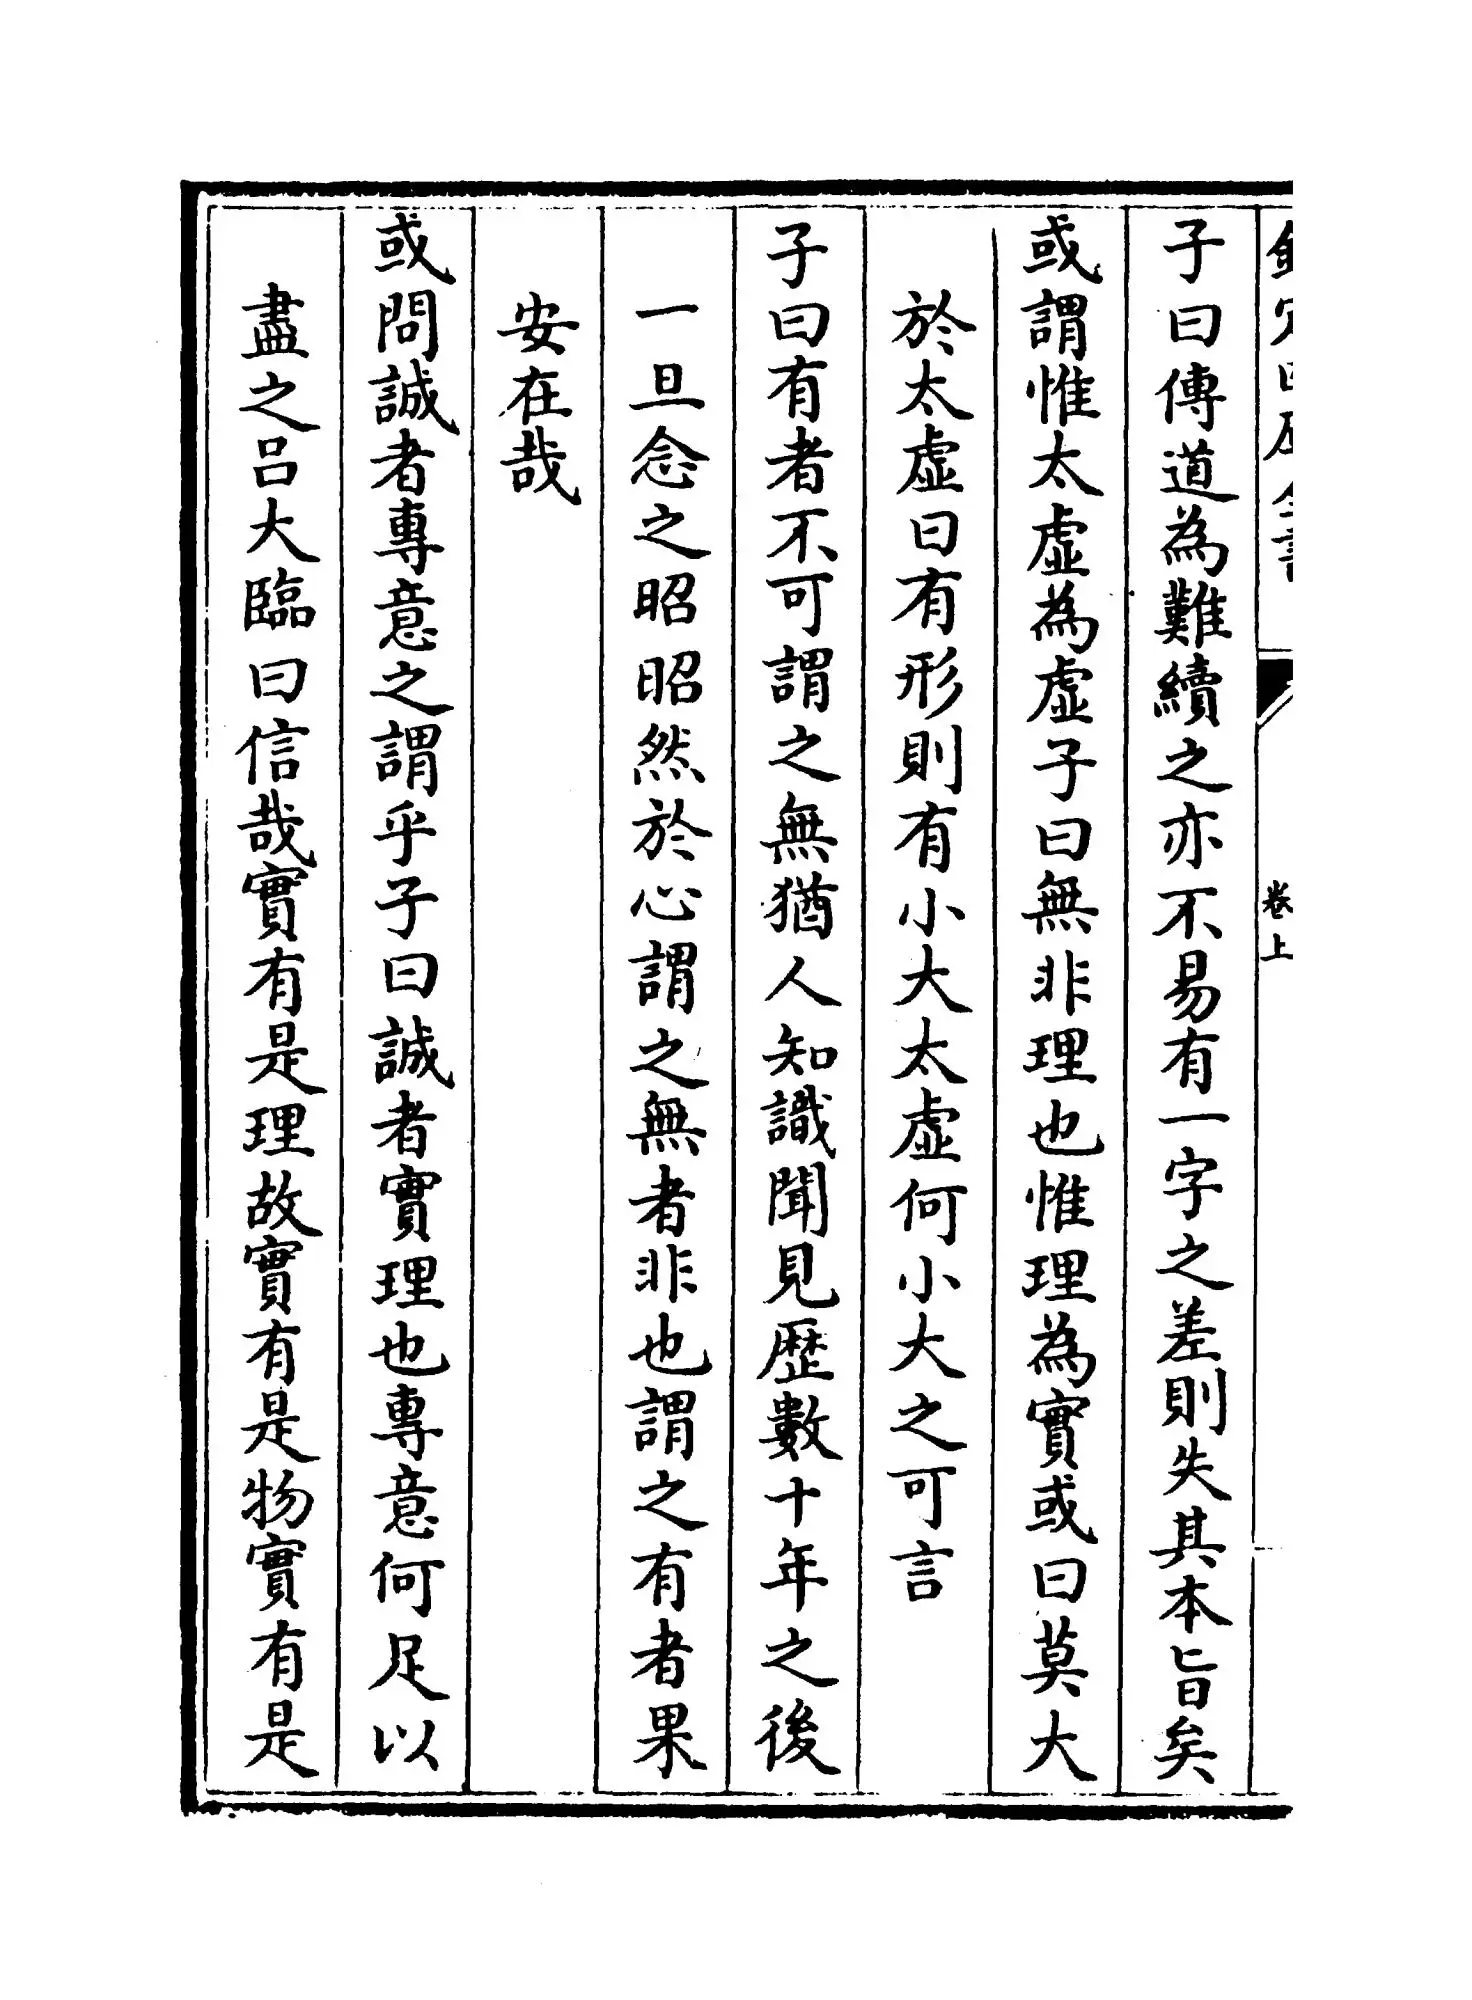 欽定四庫全書
卷上
子曰傳道為難續之亦不易有一字之差則失其本旨矣
或謂惟太虛為虛子曰無非理也惟理為實或曰莫大
於太虛曰有形則有小大太虛何小大之可言
子曰有者不可謂之無猶人知識聞見歴數十年之後
一旦念之昭昭然於心謂之無者非也謂之有者果
安在哉
或問誠者專意之謂乎子曰誠者實理也專意何足以
盡之呂大臨曰信哉實有是理故實有是物實有是